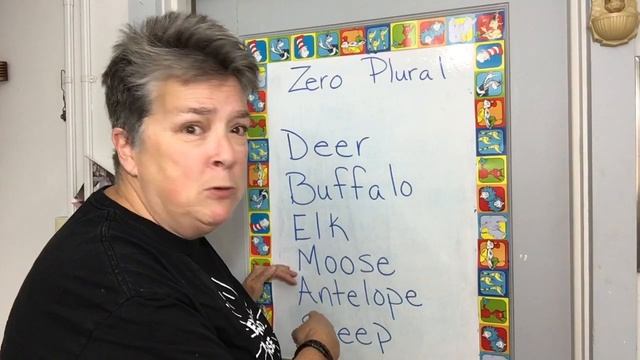 Zero Plural
Deer
Buffalo
Elk
Moose
Antelope
Sheep